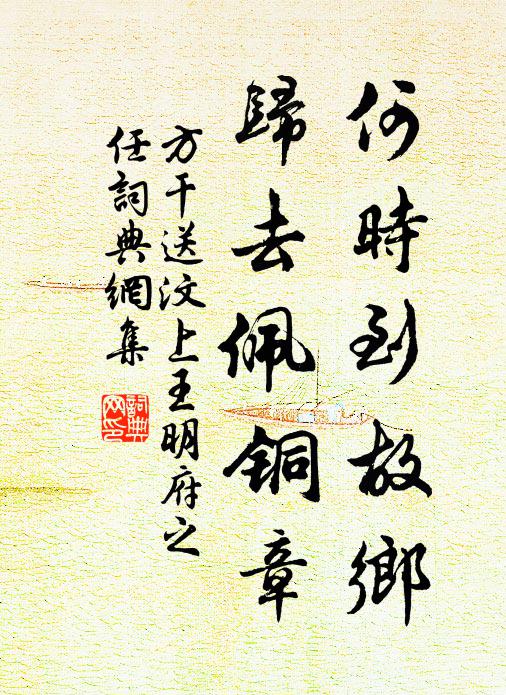 何時到故鄉
歸去佩铜章
方干送汶上王明府之
任詞典網集
詞典
网印